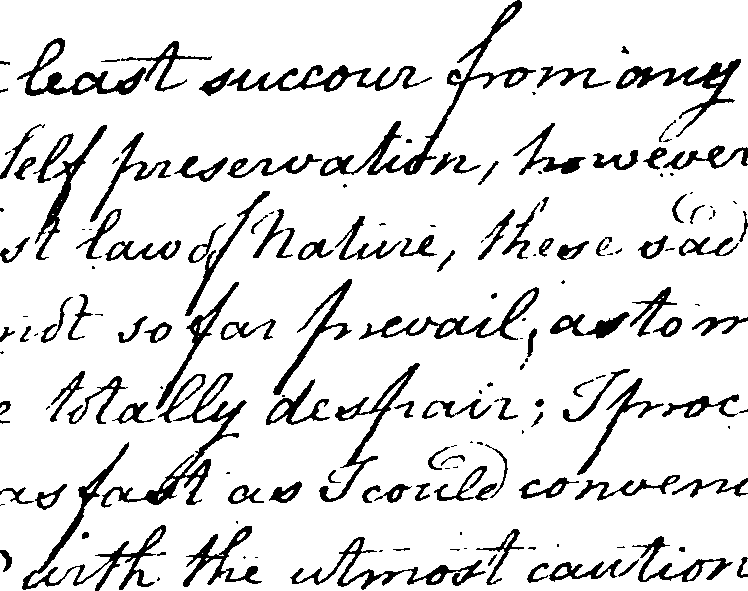 least succour from any
self preservation, however
st law of Nature, these sad
not so far prevail, as to m
e totally despair; I proc
as fast as I could conveni
with the utmost caution